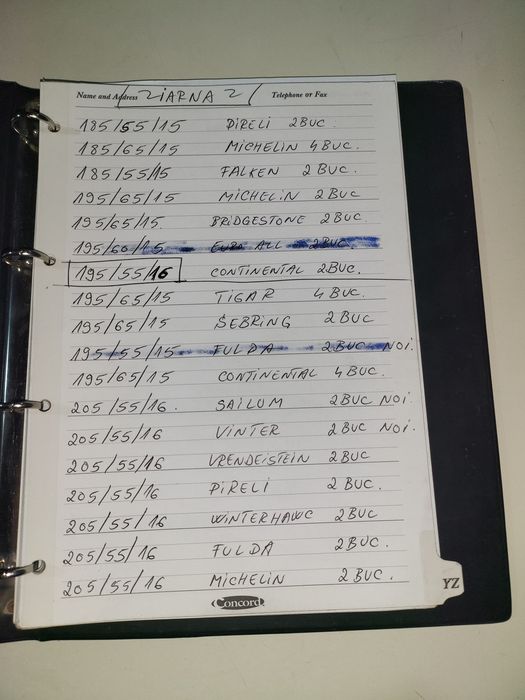 Name and Address / ZIARNA 2 / Telephone or Fax
185/55/15 PIRELI 2BUC.
185/65/15 MICHELIN 4BUC.
185/55/15 FALKEN 2BUC.
195/65/15 MICHELIN 2BUC
195/65/15. BRIDGESTONE 2BUC.
195/60/15 EURO ALL 2BUC.
195/55/16 CONTINENTAL 2BUC.
195/65/15 TIGAR 4BUC.
195/65/15 SEBRING 2BUC
195/55/15 FULDA 2BUC NOI.
195/65/15 CONTINENTAL 4BUC.
205/55/16. SAILUM 2BUC NOI.
205/55/16 VINTER 2BUC NOI.
205/55/16 VRENDEISTEIN 2BUC
205/55/16 PIRELI 2BUC.
205/55/16 WINTERHAWC 2BUC
205/55/16 FULDA 2BUC.
205/55/16 MICHELIN 2BUC.
YZ
Concord